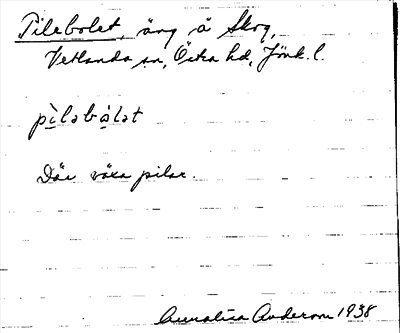 Pilebolet, äng å Skog,
Vetlanda sn, Östra hd, Jönk. l.
pìləbálət
Där växa pilar.
Annalisa Anderson 1938